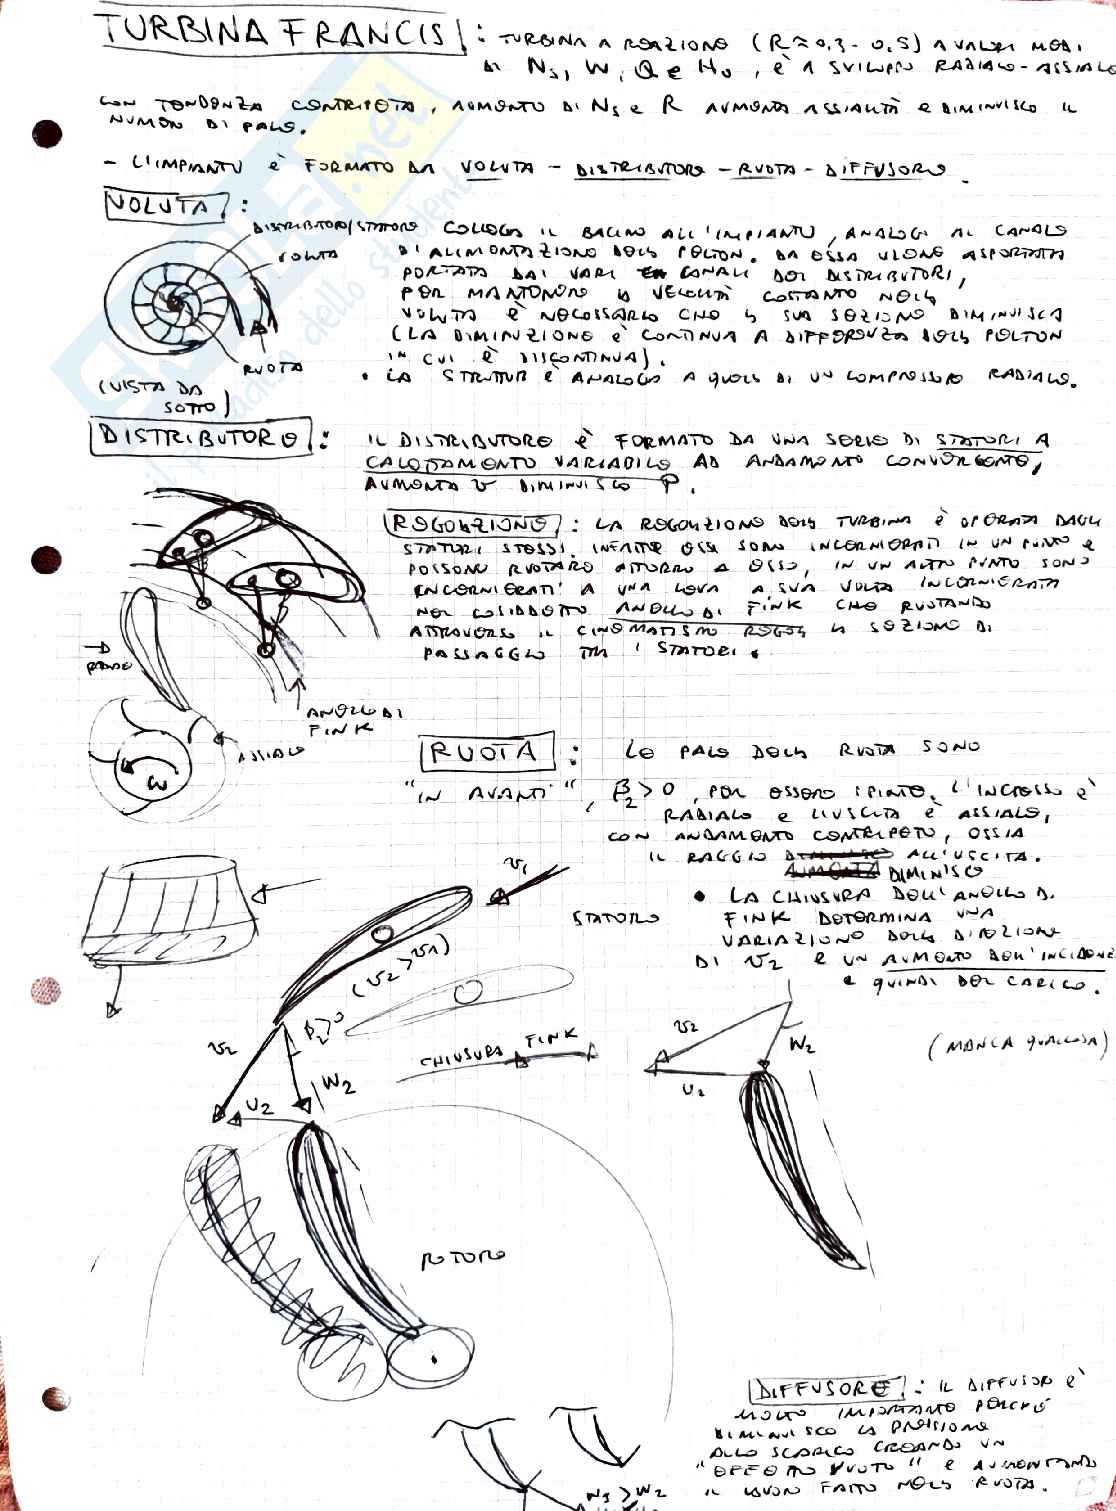 TURBINA FRANCIS : TURBINA A REAZIONE (R≈0,3-0,5) A VALORI MEDI
DI Ns, W, Q e Hu, È A SVILUPPO RADIALE-ASSIALE
CON TENDENZA CENTRIPETA, AUMENTO DI Ns e R AUMENTA ASSIALITÀ e DIMINUISCE IL
NUMERO DI PALE.
- L'IMPIANTO È FORMATO DA VOLUTA - DISTRIBUTORE - RUOTA - DIFFUSORE.
VOLUTA :
DISTRIBUTORE/STATORE
VOLUTA
RUOTA
(VISTA DA
SOTTO)
COLLEGA IL BACINO ALL'IMPIANTO, ANALOGA AL CANALE
DI ALIMENTAZIONE DELLA PELTON. DA ESSA VIENE ASPORTATA
PORTATA DAI VARI CANALI DEL DISTRIBUTORI,
PER MANTENERE LA VELOCITÀ COSTANTE NELLA
VOLUTA È NECESSARIO CHE LA SUA SEZIONE DIMINUISCA
(LA DIMINUZIONE È CONTINUA A DIFFERENZA DELLA PELTON
IN CUI È DISCONTINUA).
• LA STRUTTUR È ANALOGA A QUELLA DI UN COMPRESSORE RADIALE.
DISTRIBUTORE : IL DISTRIBUTORE È FORMATO DA UNA SERIE DI STATORI A
CALETTAMENTO VARIABILE AD ANDAMENTO CONVERGENTE,
AUMENTA v DIMINUISCE P.
REGOLAZIONE : LA REGOLAZIONE DELLA TURBINA È OPERATA DAGLI
STATORI STESSI. INFATTI ESSI SONO INCERNIERATI IN UN PUNTO e
POSSONO RUOTARE ATTORNO A ESSO, IN UN ALTRO PUNTO SONO
INCERNIERATI A UNA LEVA A SUA VOLTA INCERNIERATA
NEL COSIDDETTO ANELLO DI FINK CHE RUOTANDO
ATTRAVERSO IL CINEMATISMO REGOLA LA SEZIONE DI
PASSAGGIO TRA I STATORI.
ANELLO DI
FINK
ASSIALE
ω
RUOTA : LE PALE DELLA RUOTA SONO
"IN AVANTI", β2>0, PER ESSERE SPINTE. L'INGRESSO È
RADIALE e L'USCITA È ASSIALE,
CON ANDAMENTO CENTRIPETO, OSSIA
IL RAGGIO ALL'USCITA.
DIMINUISCE
• LA CHIUSURA DELL'ANELLO DI
FINK DETERMINA UNA
VARIAZIONE DELLA DIREZIONE
DI v2 e UN AUMENTO DELL'INCIDENZA
e QUINDI DEL CARICO.
v1
STATORE
(v2 > v1)
β2>0
v2
W2
U2
CHIUSURA FINK
v2
W2
U2
(MANCA QUALCOSA)
ROTORE
DIFFUSORE : IL DIFFUSOR È
MOLTO IMPORTANTE PERCHÉ
DIMINUISCE LA PRESSIONE
ALLO SCARICO CREANDO UN
"EFFETTO VUOTO" e AUMENTANDO
IL LAVORO FATTO NELLA RUOTA.
W3 > W2